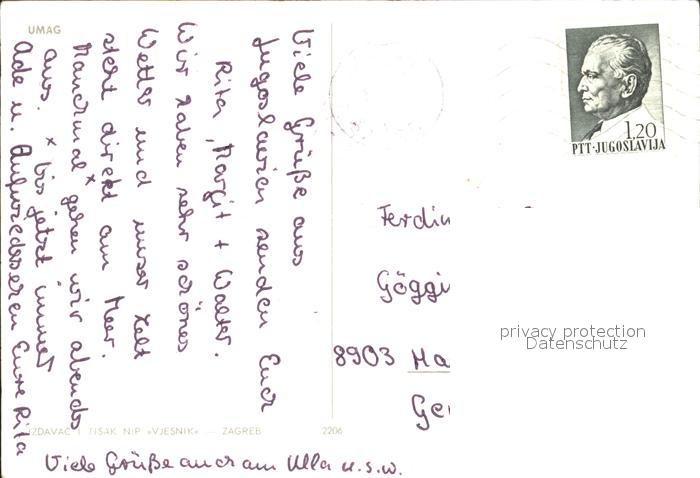 UMAG
Viele Grüße aus
Jugoslawien senden Euch
Rita, Margit + Walter.
Wir haben sehr schönes
Wetter und unser Zelt
steht direkt am Meer.
Manchmal x gehen wir abends
aus. x bis jetzt immer
Ade u. Aufwiedersehen Eure Rita
Viele Grüße auch an Ulla u.s.w.
IZDAVAČ I TISAK NIP «VJESNIK» — ZAGREB
2206
1,20
PTT·JUGOSLAVIJA
Ferdin
Göggi
8903 Ha
Ge
privacy protection
Datenschutz